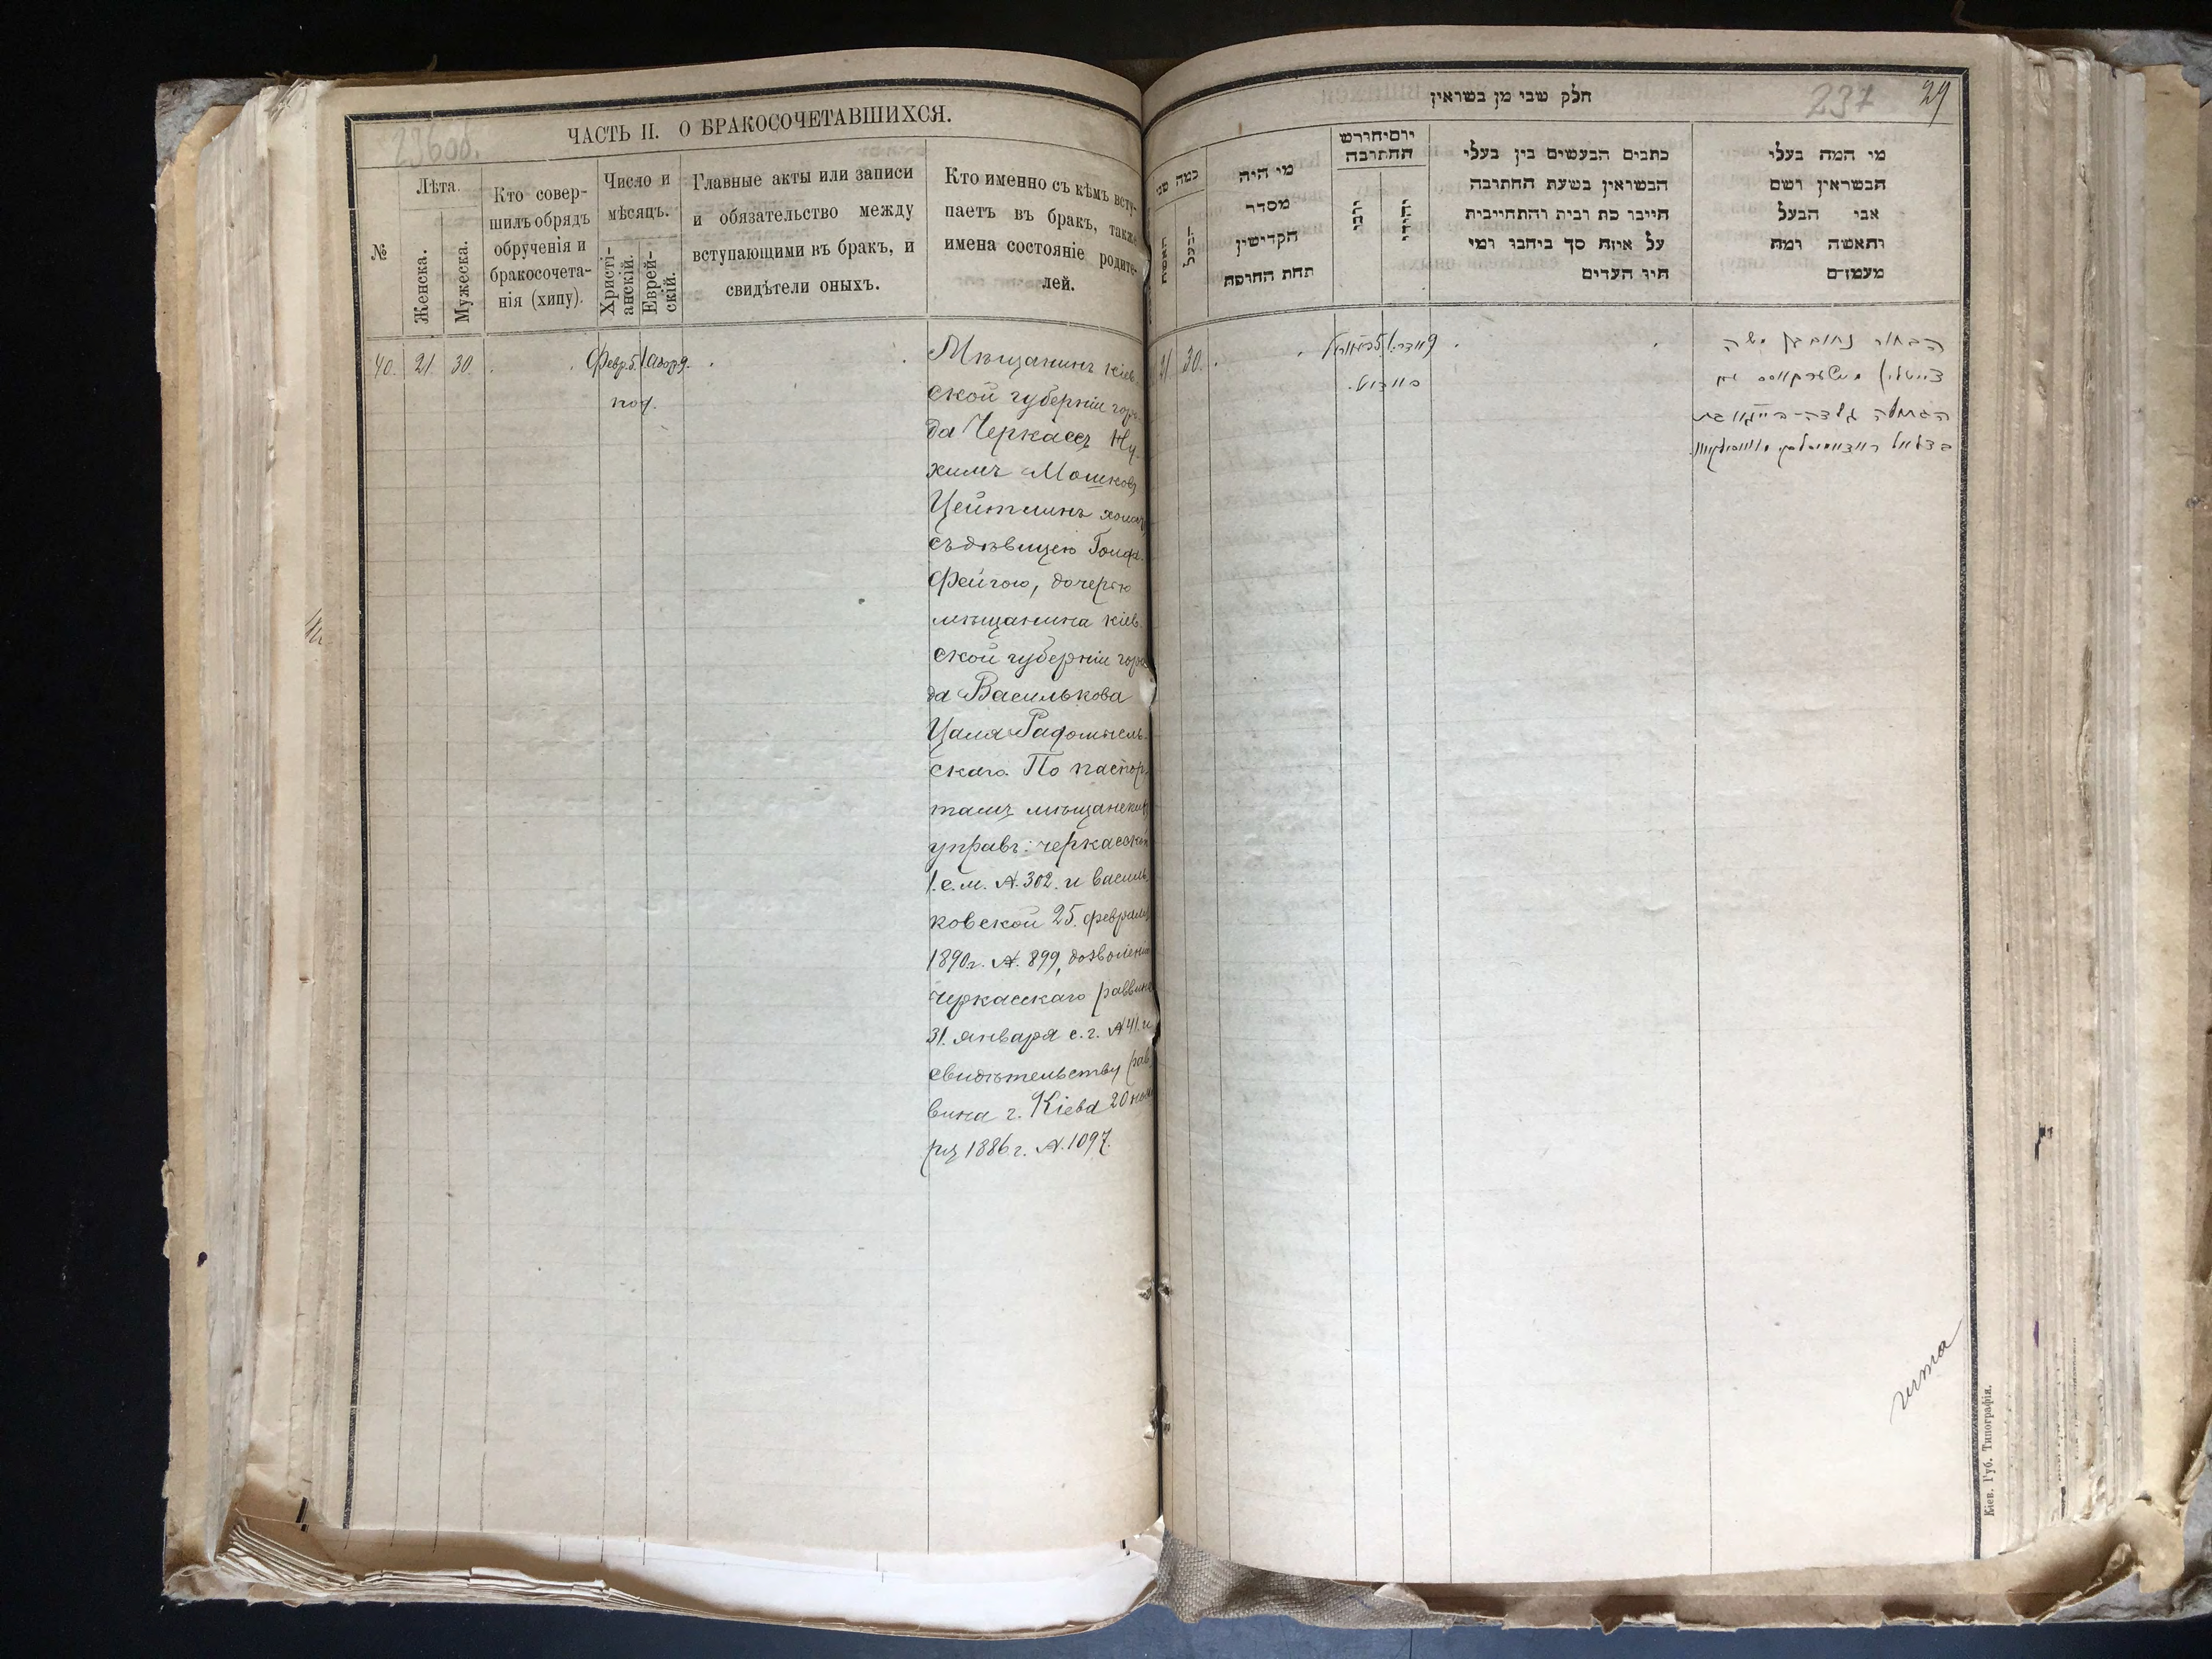 236об.
ЧАСТЬ II. О БРАКОСОЧЕТАВШИХСЯ.
№
Лѣта.
Женска.
Мужеска.
Кто совер-
шилъ обрядъ
обрученія и
бракосочета-
нія (хипу).
Число и
мѣсяцъ.
Христі-
анскій.
Еврей-
скій.
Главные акты или записи
и обязательство между
вступающими въ бракъ, и
свидѣтели оныхъ.
Кто именно съ кѣмъ всту-
паетъ въ бракъ, также
имена состояніе родите-
лей.
40. 21. 30. Февр. 5.
Мѣщанинъ кіев-
ской губерніи горо-
да Черкассъ Ну-
химъ Мошковъ
Цейтлинъ холостъ
съ дѣвицею
Фейгою, дочерью
мѣщанина кіев-
ской губерніи горо-
да Василькова
Цаля Радомысль-
скаго. По паспор-
тамъ мѣщанскихъ
управъ: черкасской
1. с. м. №. 302. и василь-
ковской 25. февраля
1890г. №. 899, дозволенію
черкасскаго раввина
31. января с. г. № 41. и
свидѣтельству рав-
вина г. Кіева 20 нояб-
ря 1886 г. №. 1097.
237 29
חלק שני מן בשראין
כמה שני
האשה
הבעל
מי היה
מסדר
הקדישין
תחת החופה
יום וחורש
החתובה
כתבים הנעשים בין בעלי
הנשואין בשעת החתובה
חייבו סת רבית והתחייבית
על איזה סך ביתבו ומי
היו העדים
מי המה בעלי
הנשואין ושם
אבי הבעל
והאשה ומה
מעמדם
21. 30.
הבחור נחום בן משה
צייטלין
Кіев. Губ. Типографія.